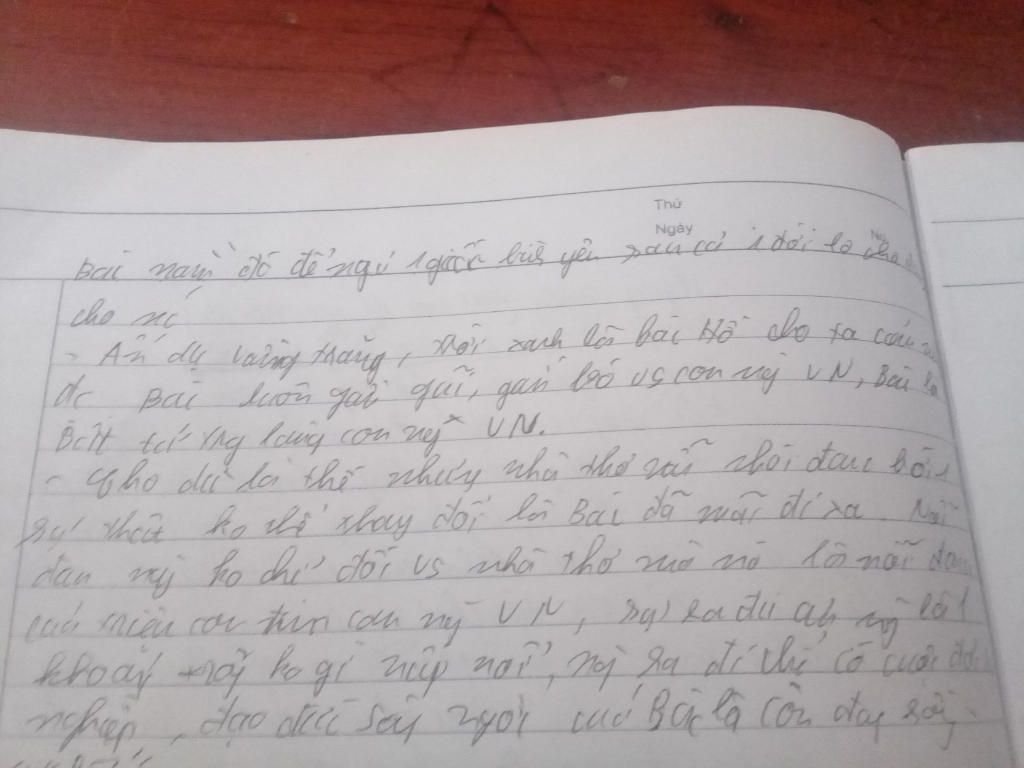 Thứ
Ngày
Bác nằm đó để ngủ 1 giấc bình yên sau cả 1 đời lo
cho nó
- Ẩn dụ vầng trăng, trời xanh là bác Hồ cho ta
đc Bác luôn gần gũi, gắn bó vs con ng VN, Bác
Bất tử trg lòng con ng VN.
- Cho dù là thế nhưng nhà thơ vẫn nhói đau bởi 1
sự thật ko thể thay đổi là Bác đã mãi đi xa. Nỗi
đau này ko chỉ đối vs nhà thơ mà nó là nỗi đau
của triệu con tim con ng VN, sự ra đi ấy là 1
khoảng trống ko gì nỗi, ng ra đi thế có cuộc đời
nghiệp, đạo đức của Bác là còn đây